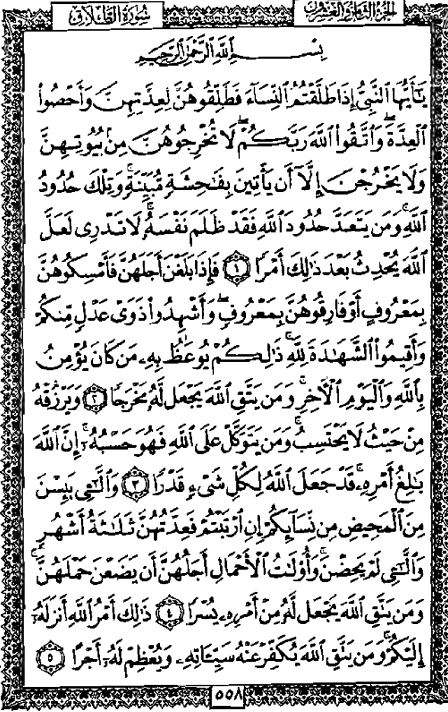 سُورَةُ الطَّلَاقِ
الجُزْءُ الثَّامِنُ وَالعِشْرُونَ
بِسْمِ اللَّهِ الرَّحْمَٰنِ الرَّحِيمِ
يَٰٓأَيُّهَا ٱلنَّبِيُّ إِذَا طَلَّقْتُمُ ٱلنِّسَآءَ فَطَلِّقُوهُنَّ لِعِدَّتِهِنَّ وَأَحْصُوا۟
ٱلْعِدَّةَ ۖ وَٱتَّقُوا۟ ٱللَّهَ رَبَّكُمْ ۖ لَا تُخْرِجُوهُنَّ مِنۢ بُيُوتِهِنَّ
وَلَا يَخْرُجْنَ إِلَّآ أَن يَأْتِينَ بِفَٰحِشَةٍ مُّبَيِّنَةٍ ۚ وَتِلْكَ حُدُودُ
ٱللَّهِ ۚ وَمَن يَتَعَدَّ حُدُودَ ٱللَّهِ فَقَدْ ظَلَمَ نَفْسَهُۥ ۚ لَا تَدْرِى لَعَلَّ
ٱللَّهَ يُحْدِثُ بَعْدَ ذَٰلِكَ أَمْرًا ١ فَإِذَا بَلَغْنَ أَجَلَهُنَّ فَأَمْسِكُوهُنَّ
بِمَعْرُوفٍ أَوْ فَارِقُوهُنَّ بِمَعْرُوفٍ وَأَشْهِدُوا۟ ذَوَىْ عَدْلٍ مِّنكُمْ
وَأَقِيمُوا۟ ٱلشَّهَٰدَةَ لِلَّهِ ۚ ذَٰلِكُمْ يُوعَظُ بِهِۦ مَن كَانَ يُؤْمِنُ
بِٱللَّهِ وَٱلْيَوْمِ ٱلْءَاخِرِ ۚ وَمَن يَتَّقِ ٱللَّهَ يَجْعَل لَّهُۥ مَخْرَجًا ٢ وَيَرْزُقْهُ
مِنْ حَيْثُ لَا يَحْتَسِبُ ۚ وَمَن يَتَوَكَّلْ عَلَى ٱللَّهِ فَهُوَ حَسْبُهُۥٓ ۚ إِنَّ ٱللَّهَ
بَٰلِغُ أَمْرِهِۦ ۚ قَدْ جَعَلَ ٱللَّهُ لِكُلِّ شَىْءٍ قَدْرًا ٣ وَٱلَّٰٓـِٔى يَئِسْنَ
مِنَ ٱلْمَحِيضِ مِن نِّسَآئِكُمْ إِنِ ٱرْتَبْتُمْ فَعِدَّتُهُنَّ ثَلَٰثَةُ أَشْهُرٍ
وَٱلَّٰٓـِٔى لَمْ يَحِضْنَ ۚ وَأُو۟لَٰتُ ٱلْأَحْمَالِ أَجَلُهُنَّ أَن يَضَعْنَ حَمْلَهُنَّ ۚ
وَمَن يَتَّقِ ٱللَّهَ يَجْعَل لَّهُۥ مِنْ أَمْرِهِۦ يُسْرًا ٤ ذَٰلِكَ أَمْرُ ٱللَّهِ أَنزَلَهُۥٓ
إِلَيْكُمْ ۚ وَمَن يَتَّقِ ٱللَّهَ يُكَفِّرْ عَنْهُ سَيِّـَٔاتِهِۦ وَيُعْظِمْ لَهُۥٓ أَجْرًا ٥
٥٥٨